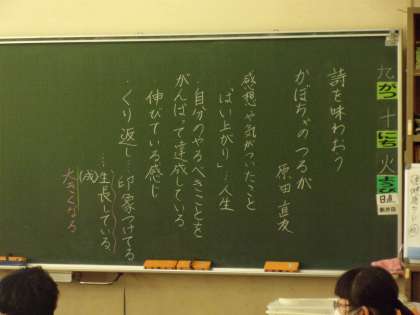 九 がつ 十 にち 火 ようび
日直
詩を味わおう
かぼちゃのつるが
原田 直友
感想や気がついたこと
・「はい上がり」…人生
・自分のやるべきことを
がんばって達成している
伸びている感じ
・くり返し…印象つけてる
…生長している
(成)
大きくなる